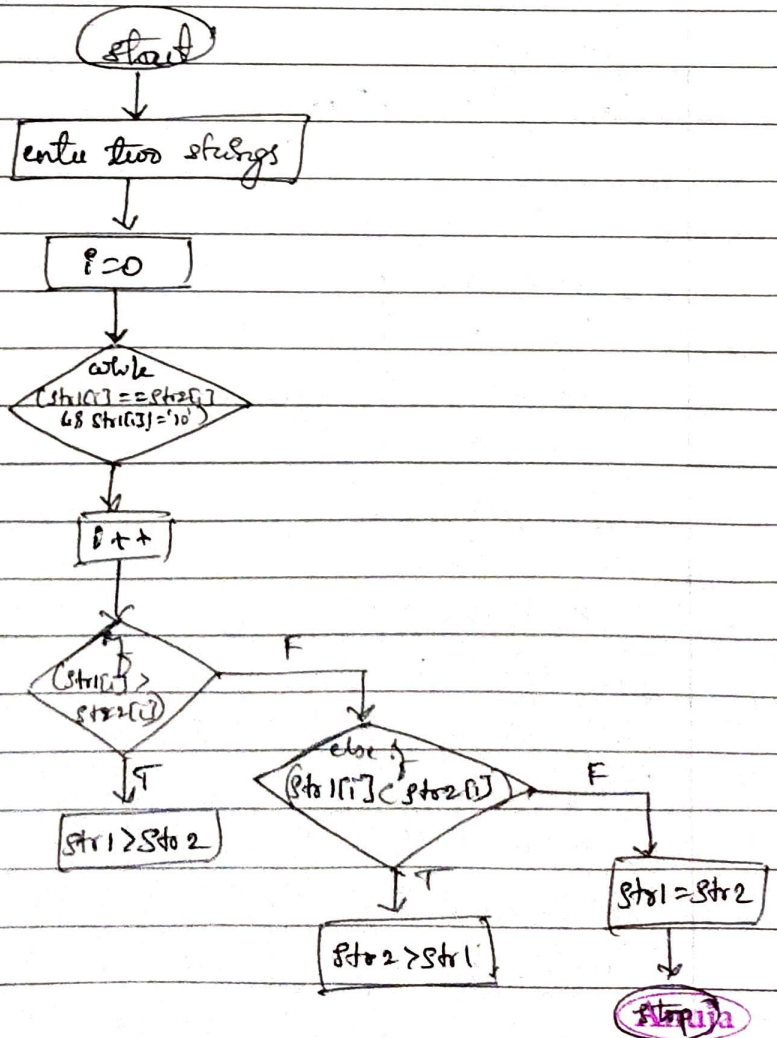 start
enter two strings
i=0
while
(str1[i]==str2[i]
&& str1[i]!='\0')
i++
if
(str1[i]>
str2[i])
F
T
str1>str2
else if
(str1[i]<str2[i])
F
T
str1=str2
str2>str1
stop